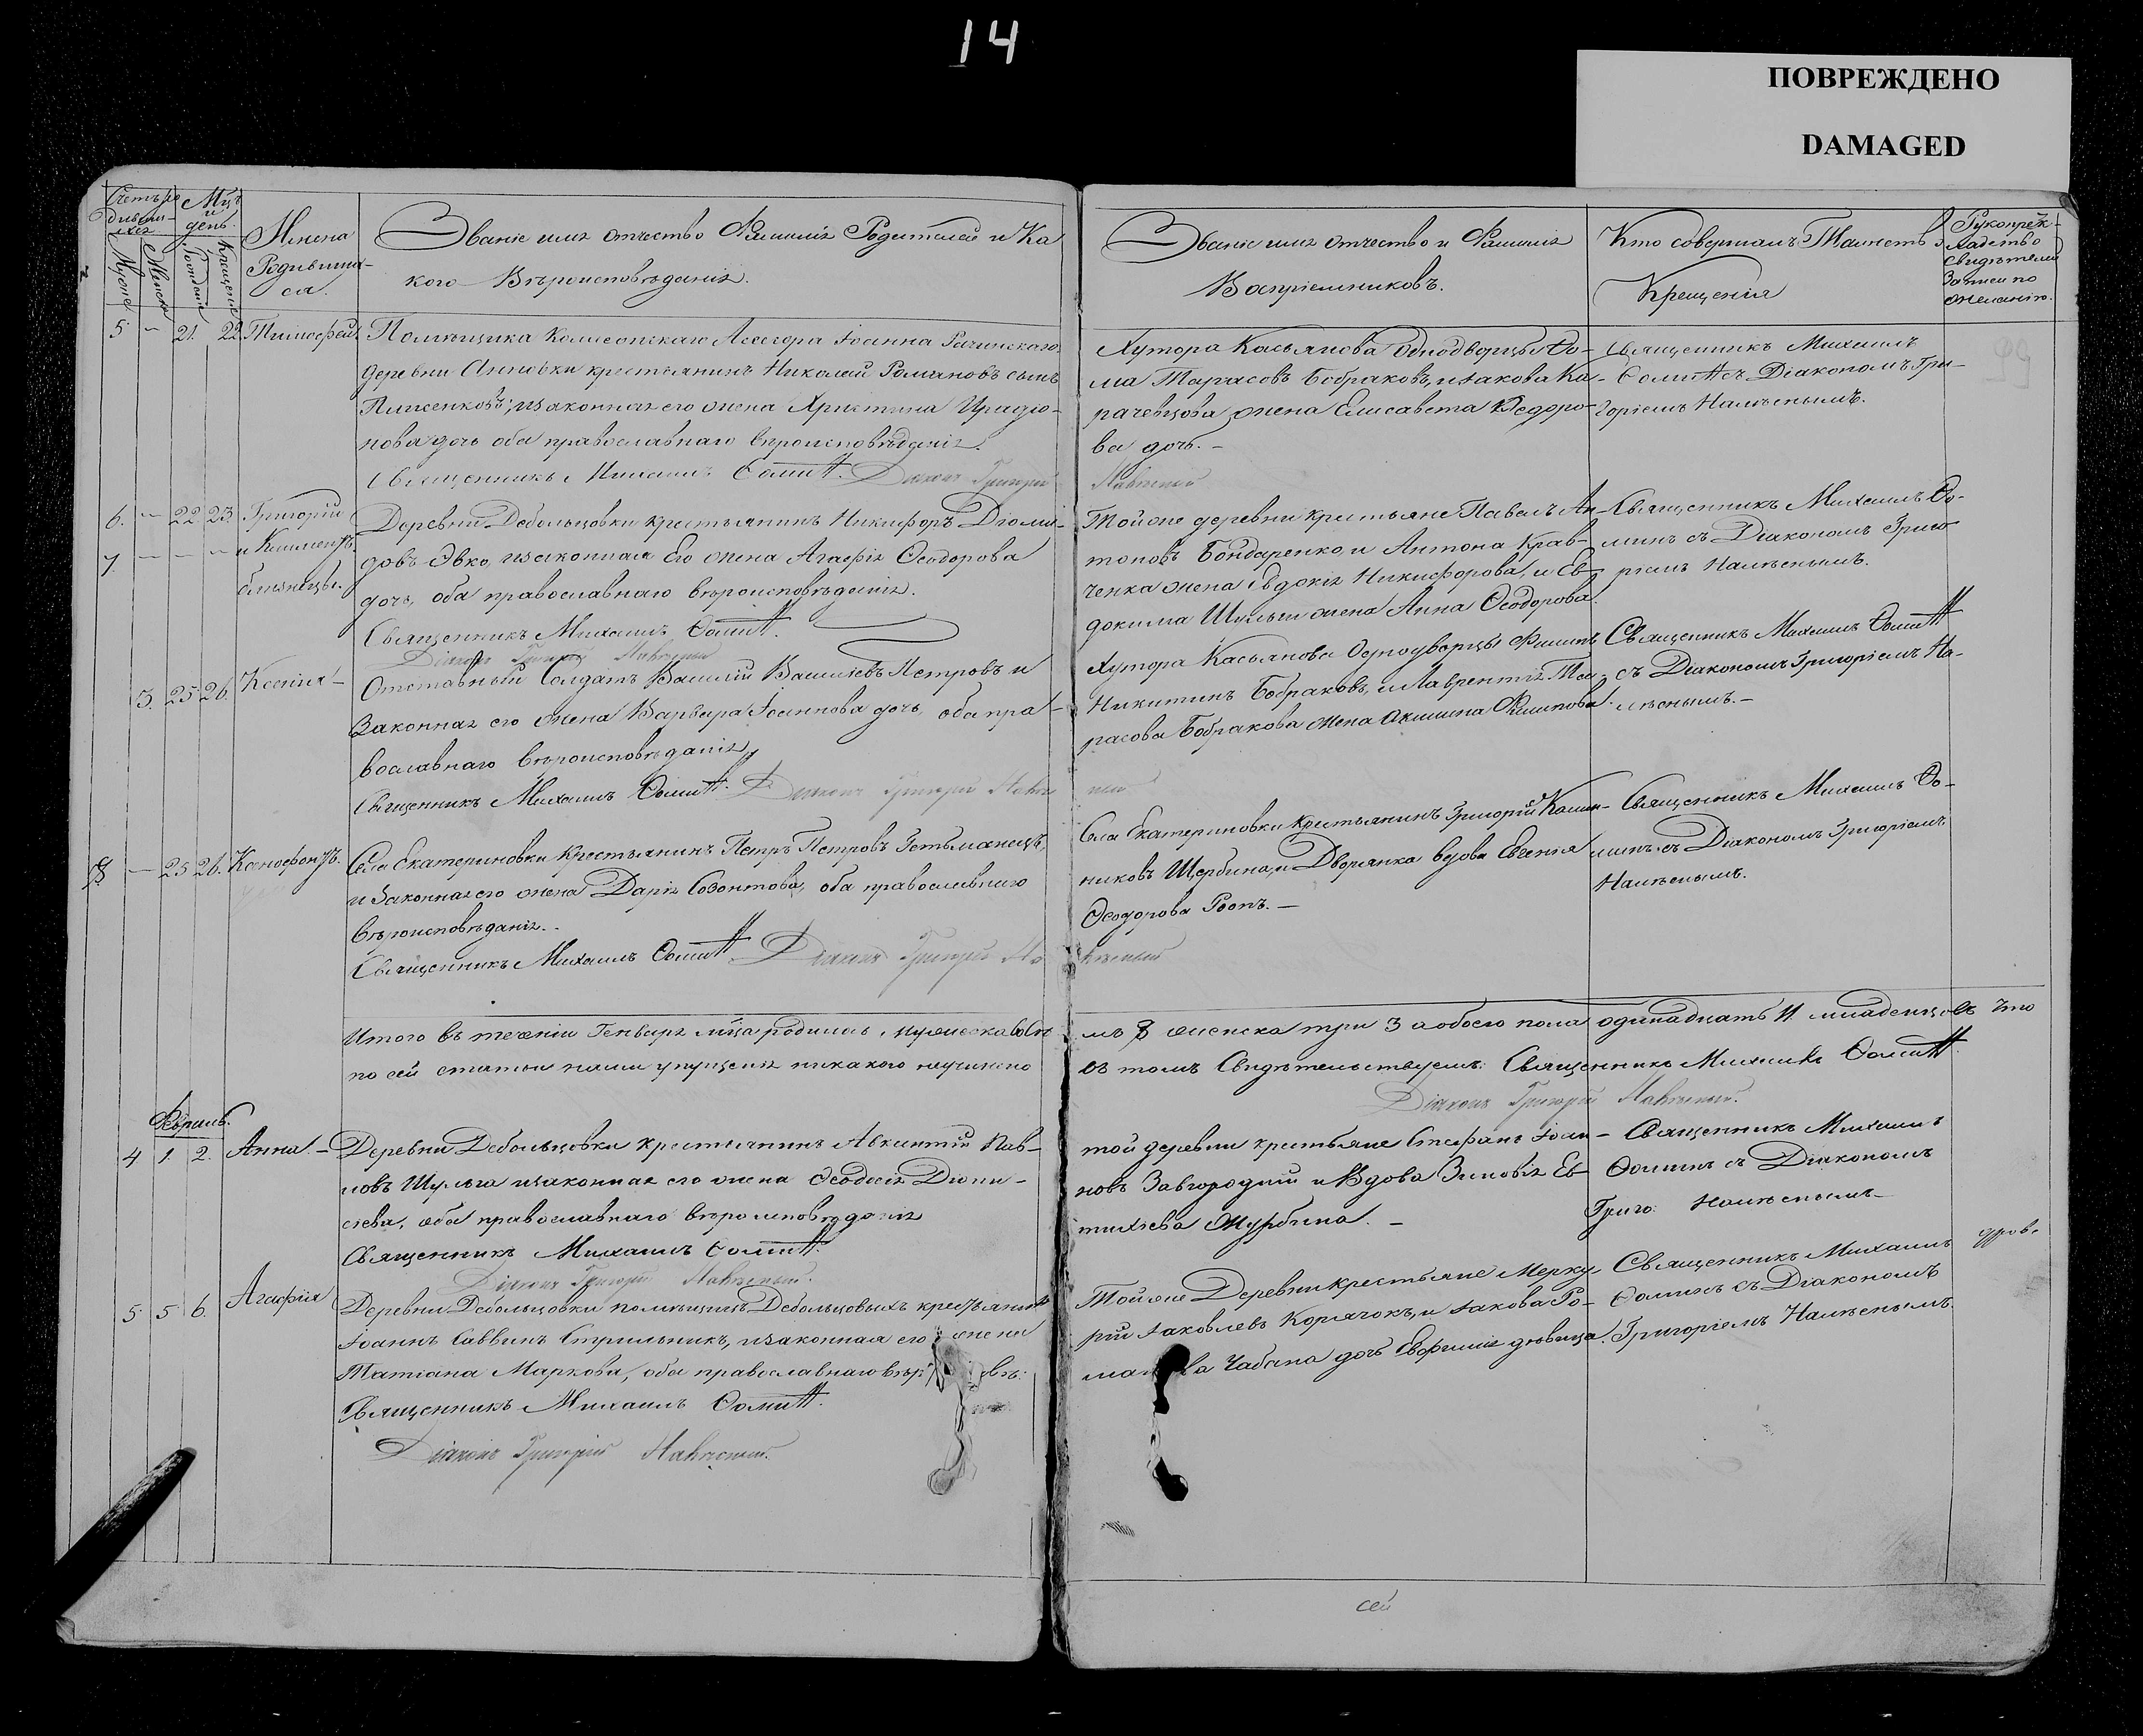 14
ПОВРЕЖДЕНО
DAMAGED
Счетъ родившихся
Мужеск
Женск
Мцъ и день
Рожденія
Крещенія
Имена Родившихся.
Званіе имя отчество Фамилія Родителей и Ка
кого Вѣроисповѣданія.
Званіе имя отчество и Фамилія
Воспріемниковъ.
Кто совершалъ Таинство
Крещенія
Рукоприкладство свидѣтелей записи по желанію.
5 - 21. 22. Тимофей.
Помѣщика Коллежскаго Ассесора Іоанна Рачинскаго
деревни Анновки крестьянинъ Николай Романовъ сынъ
изаконная его жена Христина Иродіо-
нова дочь оба православнаго вѣроисповѣданія.
Священникъ Михаилъ Ѳомин. Діаконъ Григорій
Хутора Касьянова Однодворцы Ѳо-
ма Тарасовъ Бобраковъ, и Іакова Ка-
рачевцова жена Елисавета Ѳедоро-
ва дочь. -
Священникъ Михаилъ
Ѳомин съ Діакономъ Гри-
горіемъ
6. - 22 23. Григорій
7 - - - и Климентъ.
близнецы.
Деревни Дебольцовки крестьянинъ Никифоръ Діоми-
довъ Эвко, изаконная Его жена Агафія Ѳеодорова
дочь, оба православнаго вѣроисповѣданія.
Священникъ Михаилъ Ѳомин.
Діаконъ Григорій
Тойже деревни крестьяне Павелъ Ан-
тоновъ Бондаренко, и Антона Крав-
ченка жена Евдокія Никифорова, и Ев-
докима Шульги жена Анна Ѳеодорова.
Священникъ Михаилъ Ѳо-
минъ съ Діакономъ Григо
ріемъ
3. 25 26. Ксенія -
Отставный Солдатъ Василій Васильевъ Петровъ и
Законная его жена Варвара Іоаннова дочь, оба пра-
вославнаго вѣроисповѣданія,
Священникъ Михаилъ Ѳомин. Діаконъ Григорій
Хутора Касьянова Однодворцы Филипъ
Никитинъ Бобраковъ, и Лаврентія Та-
расова Бобракова жена Акилина Филипова.
Священникъ Михаилъ Ѳомин
съ Діакономъ Григоріемъ
8 - 25 26. Ксенофонтъ.
Села Екатериновки Крестьянинъ Петръ Петровъ Гетьманецъ,
и Законная его жена Дарія Созонтова, оба православнаго
вѣроисповѣданія.
Священникъ Михаилъ Ѳомин. Діаконъ Григорій
Села Екатериновки крестьянинъ Григорій Калин-
никовъ Щербина, и Дворянка вдова Евгенія
Ѳеодорова Роопъ. -
Священникъ Михаилъ Ѳо-
минъ съ Діакономъ Григоріемъ
Итого въ теченіи Генваря мца родилось, мужеска восе мъ 8 женска три 3 а обоего пола одинадцать 11 младенцовъ что
по сей статьи нами упущенія никакого неучинено въ томъ Свидѣтельствуемъ. Священникъ Михаилъ Ѳомин.
Діаконъ Григорій
Февраль.
4 1. 2. Анна. -
Деревни Дебольцовки крестьянинъ Авксентій Пав-
ловъ Шульга изаконная его жена Ѳеодосія Діони-
сіева, оба православнаго вѣроисповѣданія
Священникъ Михаилъ Ѳомин.
Діаконъ Григорій
той деревни крестьяне Стефанъ Іоан-
новъ Завгородній и Вдова Зиновія Ев-
тихіева Журбина. -
Священникъ Михаилъ
Ѳоминъ съ Діакономъ
Григо:
5 5 6. Агафія
Деревни Дебольцовки помѣщицъ Дебольцовыхъ крестьянинъ
Іоаннъ Саввинъ Стрильникъ, изаконная его жена
Татіана Маркова, оба православнаго
Священникъ Михаилъ Ѳомин.
Діаконъ Григорій
Тойже Деревни крестьяне Мерку
рій Іаковлевъ Корячокъ, и Іакова Ро-
Чабана дочь Евфимія дѣвица.
Священникъ Михаилъ
Ѳоминъ съ Діакономъ
Григоріемъ
сей